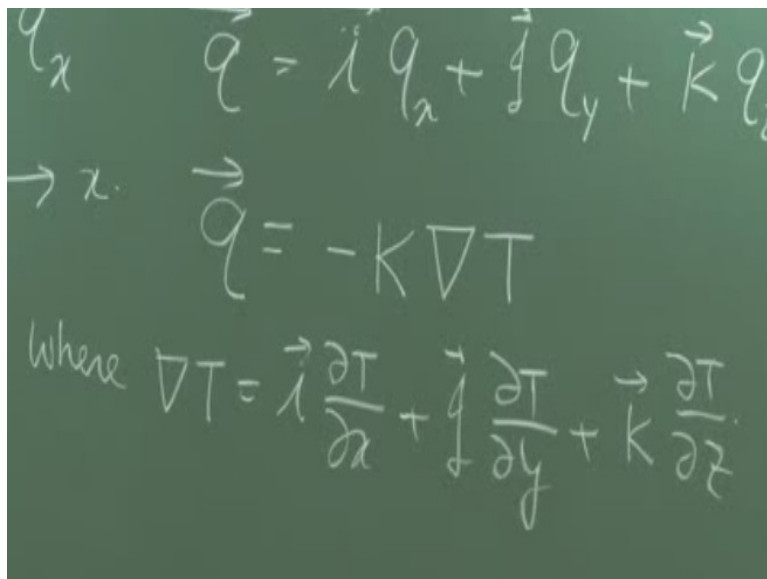 qₓ q⃗ = i⃗ qₓ + j⃗ q_y + k⃗ q_z
→ x. q⃗ = -K∇T
where ∇T = i⃗ ∂T/∂x + j⃗ ∂T/∂y + k⃗ ∂T/∂z.